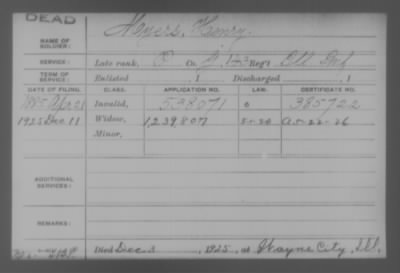 DEAD
NAME OF SOLDIER: Myers, Henry.
SERVICE: Late rank, Co. G, 123 Reg't Ill Inf
TERM OF SERVICE: Enlisted , 1 Discharged , 1
DATE OF FILING. CLASS. APPLICATION NO. LAW. CERTIFICATE NO.
1885 Apr 21 Invalid, 538071 385722
1925 Dec. 11 Widow, 1,239,807
Minor,
ADDITIONAL SERVICES:
REMARKS:
Died Dec 3, 1925, at Wayne City, Ill.